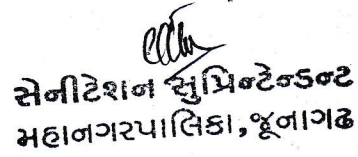 સેનીટેશન સુપ્રિન્ટેન્ડન્ટ
મહાનગરપાલિકા,જૂનાગઢ